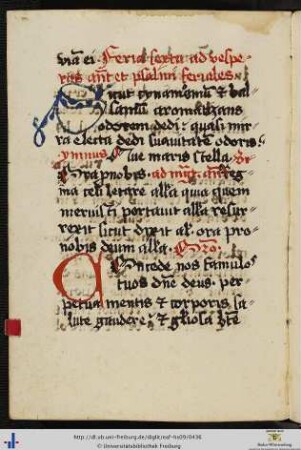 via ei Feria sexta ad vespe
ras añ et psalmi feriales
Sicut cynamomū & bal
samū aromatizans
odorem dedi: quasi mir
ra electa dedi suavitatē odoris:
ymnus Ave maris stella
Ora pro nobis ad
na celi letare alla quia quem
meruisti portare alla resur
rexit sicut dixit al' ora pro
nobis deum alla Oro
Concede nos famulos
tuos dñe deus per
petua mentis & corporis sa
lute gaudere: & gliosa bte
http://dl.ub.uni-freiburg.de/diglit/nsf-4s09/0436
© Universitätsbibliothek Freiburg